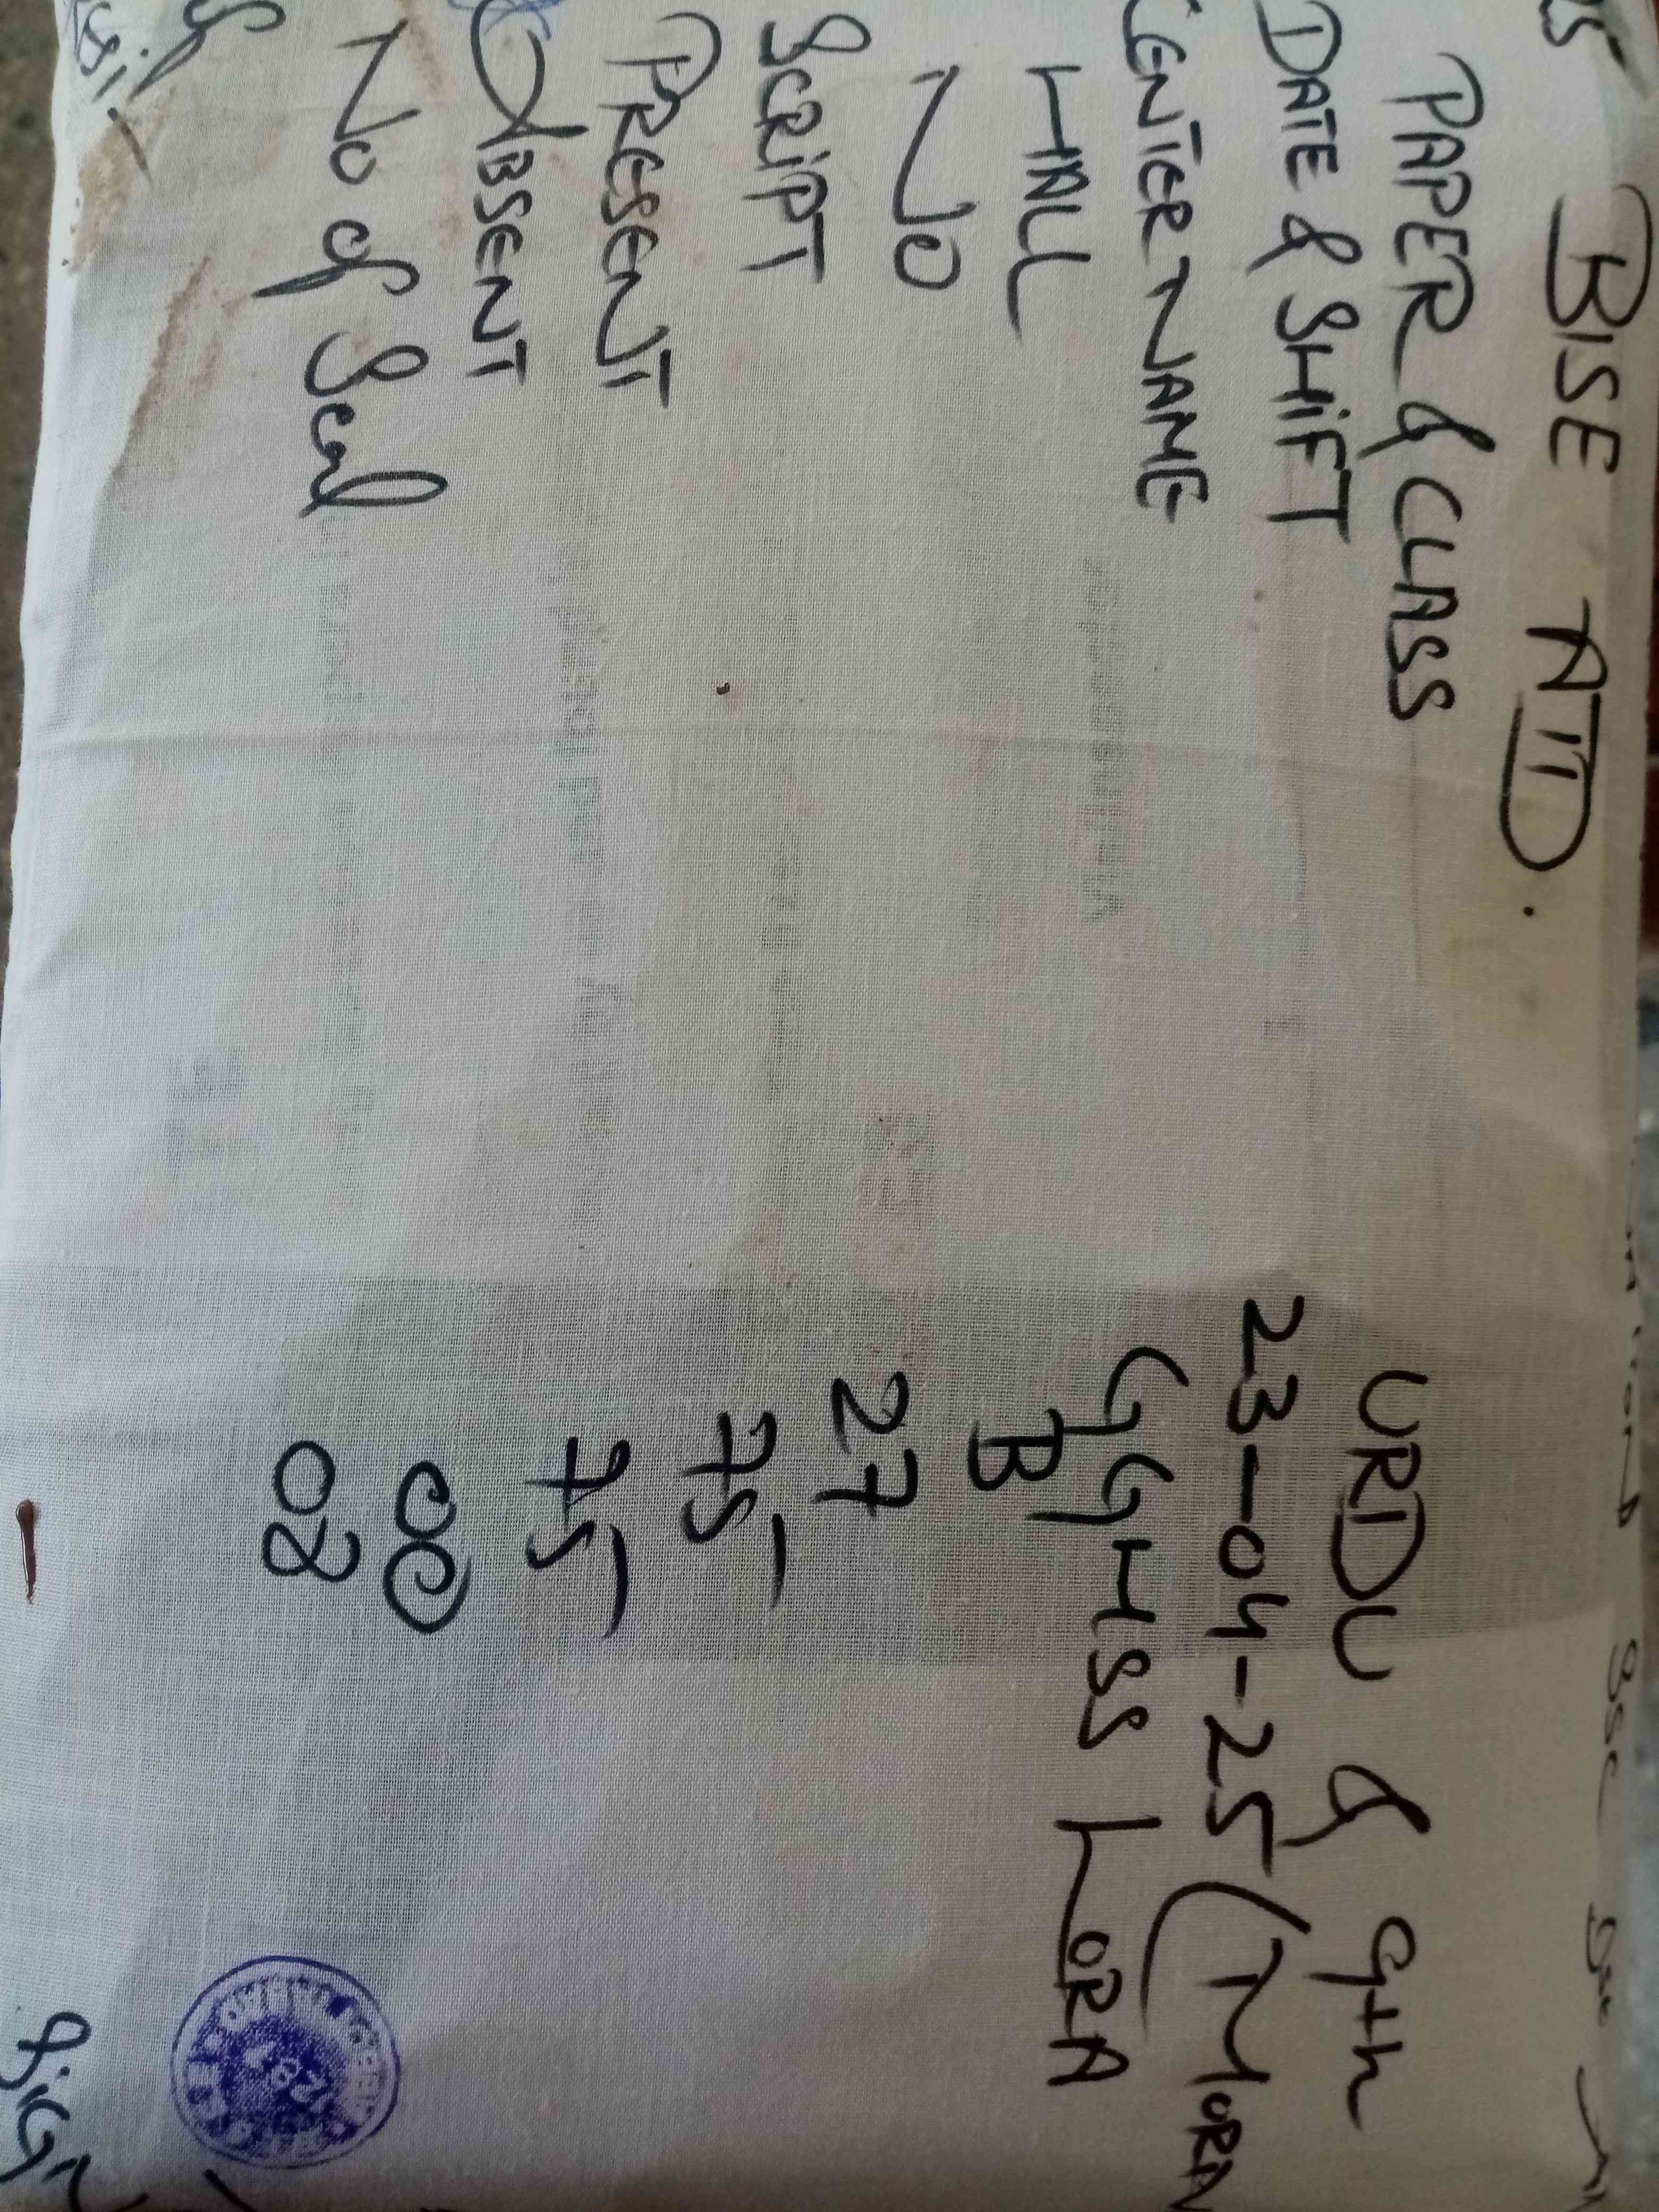 BISE ATD.
PAPER & CLASS URDU & 9th
DATE & SHIFT 23-04-25 (MORN
CENTER NAME GGHSS LORA
HALL B
NO 27
SCRIPT 75
PRESENT 75
ABSENT 00
No of Seal 02
Sign